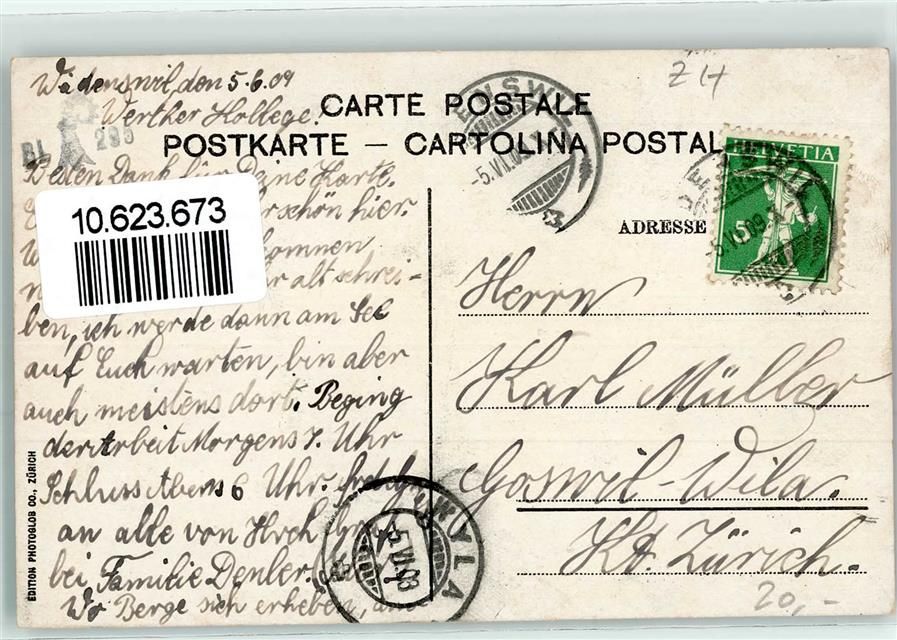 Wädenswil, den 5.6.09
Werther Kollege!
CARTE POSTALE
POSTKARTE – CARTOLINA POSTAL
BL 295
ENSWIL
-5.VI.09.
HELVETIA
5
ADRESSE
10.623.673
Dank für Deine Karte.
schön hier.
kommen
alt schrei-
ben, ich werde dann am See
auf Euch warten, bin aber
auch meistens dort. Beging
der Arbeit Morgens 7. Uhr
Schluss Abens 6 Uhr.
an alle von
bei Familie Denler.
Wo Berge sich erheben,
Herrn
Karl Müller
Goswil-Wila.
Kt. Zürich.
WYLA
5.VI.09
EDITION PHOTOGLOB CO., ZÜRICH
ZH
20,-